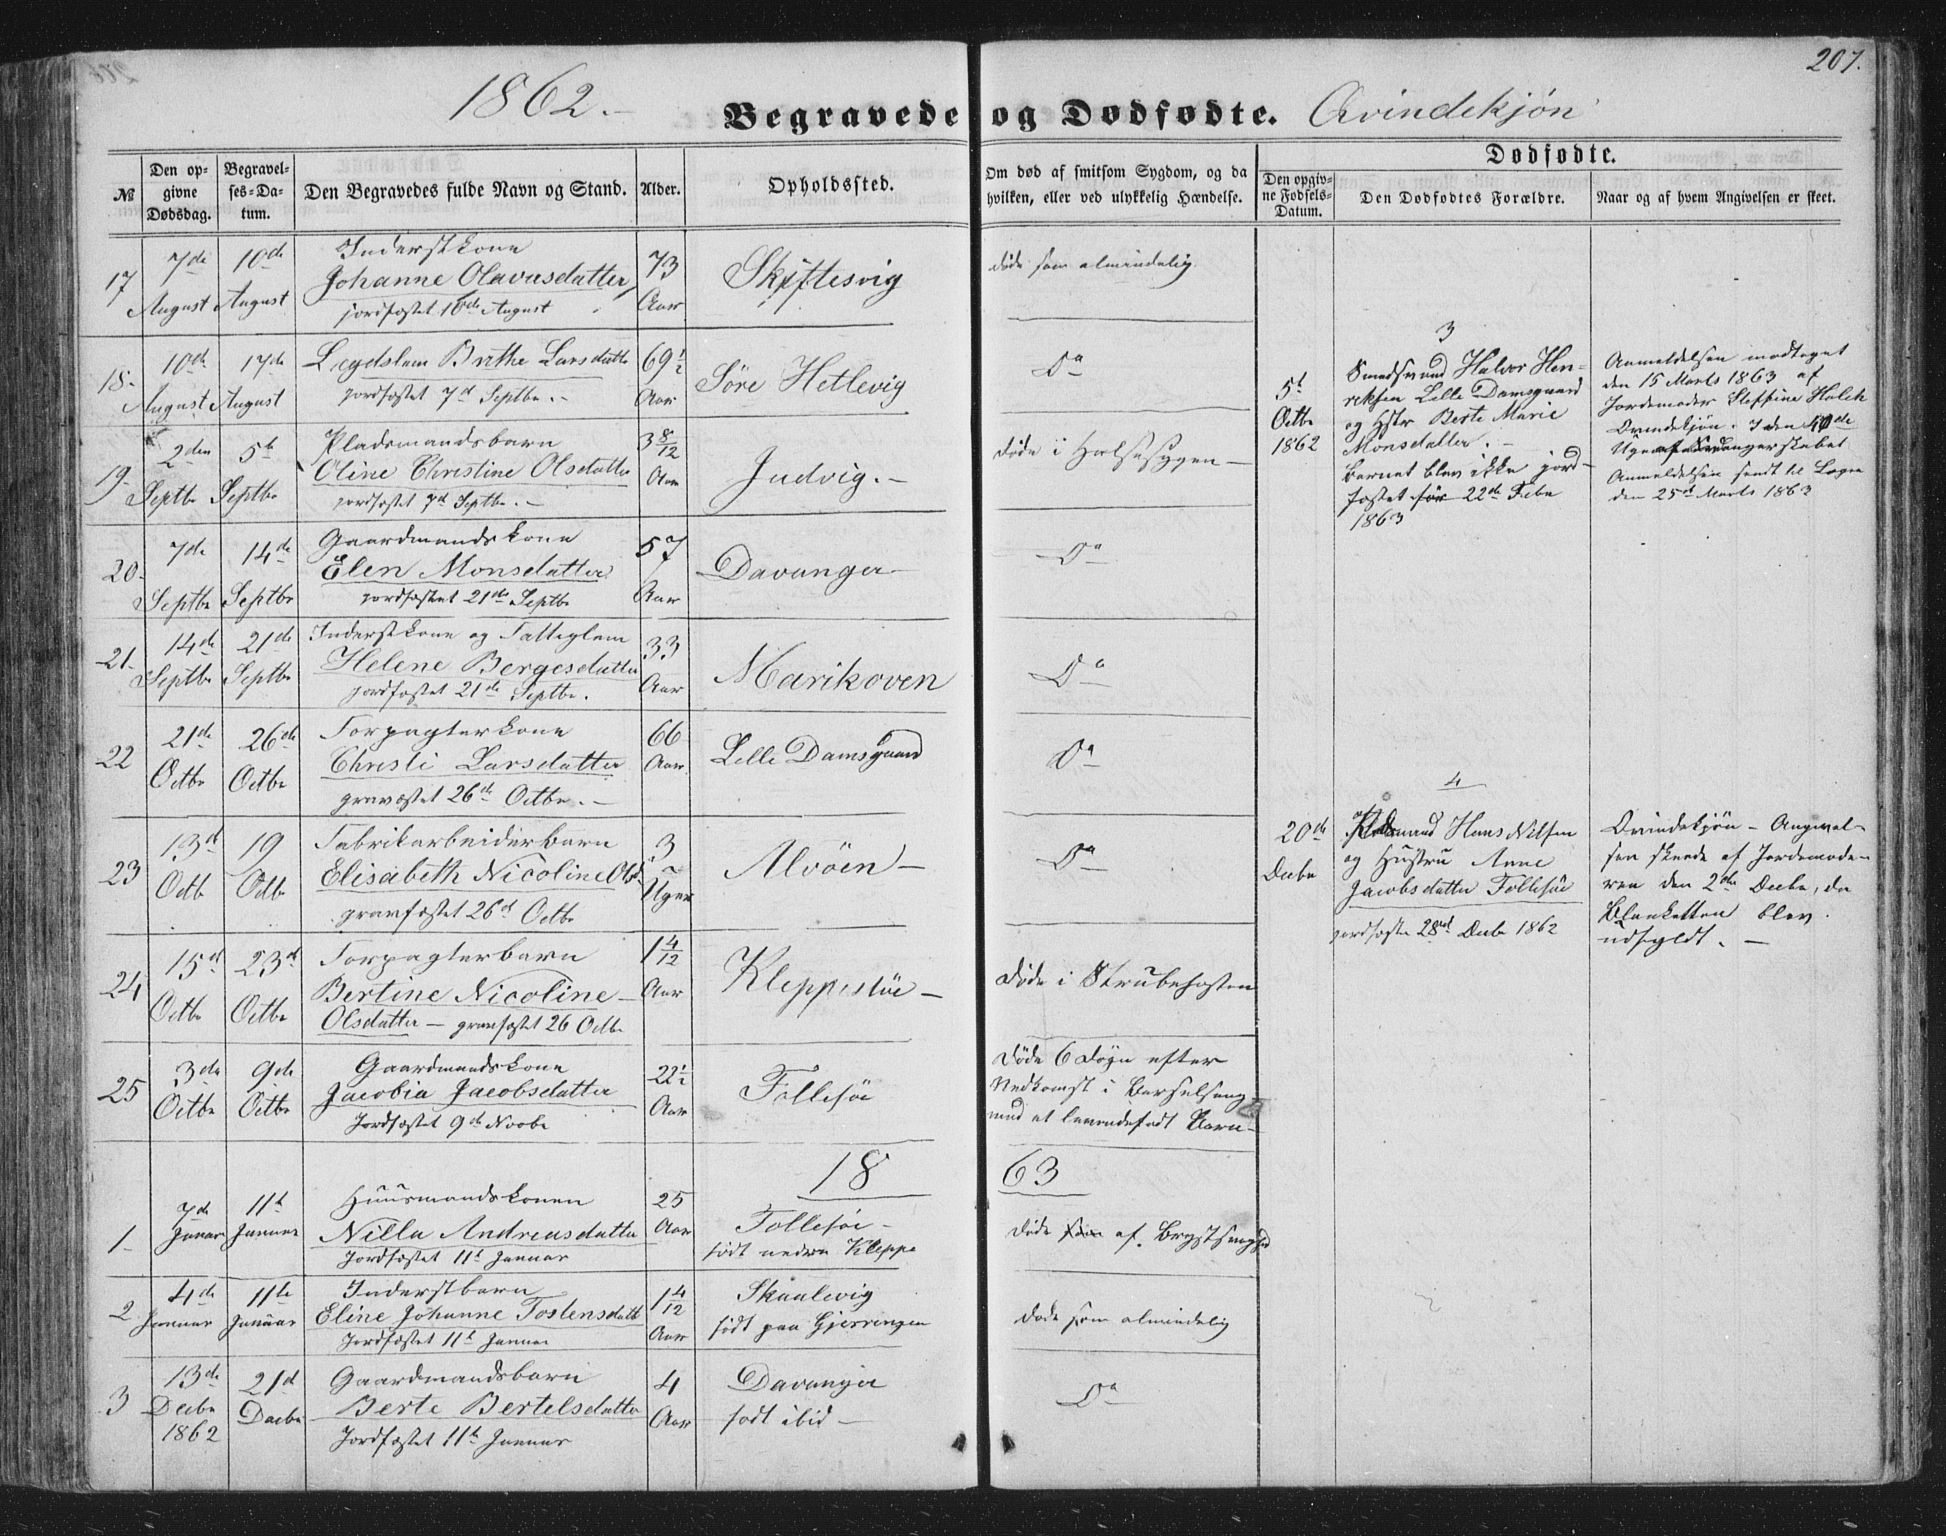 207.
1862.-
Begravede og Dødfødte. Qvindekjøn
№
Den op-
givne
Dødsdag.
Begravel-
ses-Da-
tum.
Den Begravedes fulde Navn og Stand.
Alder.
Opholdssted.
Om død af smitsom Sygdom, og da
hvilken, eller ved ulykkelig Hændelse.
Dødfødte.
Den opgiv-
ne Fødsels-
Datum.
Den Dødfødtes Forældre.
Naar og af hvem Angivelsen er skeet.
17
7de
August
10de
August
Inderstkone
Johanne Olavusdatter
jordfæstet 10de August
73
Aar
Skiftesvig
døde som almindelig
18.
10de
August
17de
August
Lægdslem Brithe Larsdatter
jordfæstet 7d Septbr.-
69½
Aar
Söre Hetlevig
Do
19.
2den
Septbr
5t
Septbr
Pladsmandsbarn
Oline Christine Olsdatter
jordfæstet 7d Septbr.-
3 8/12
Aar
Judvig.-
døde i Halssygen-
20.
7de
Septbr
14de
Septbr
Gaardmandskone
Elen Monsdatter
jordfæstet 21de Septbr
57
Aar
Davanger-
Do
21.
14de
Septbr
21de
Septbr
Inderstkone og Fattiglem
Helene Bergesdatter
jordfæstet 21de Septbr.
33
Aar
Marikoven
Do
22
21de
Octbr
26de
Octbr
Forpagterkone
Christi Larsdatter
gravfæstet 26de Octbr.-
66
Aar
Lille Damsgaard
Do
23
13d
Octb
19
Octb
Fabrikarbeiderbarn
Elisabeth Nicoline Olsd
gravfæstet 26d Octbr
3
Uger
Alvöen-
Do
24
15d
Octbr
23d
Octbr
Forpagterbarn
Bertine Nicoline-
Olsdatter - gravfæstet 26 Octbr
1 4/12
Aar
Kleppestöe-
Døde i Strubehosten
25
3de
Octbr
9de
Octbr
Gaardmandskone
Jacobia Jacobsdatter
Jordfæstet 9de Novbr
22½
Aar
Follesöe
Døde 6 Døgn efter
Nedkomst i Barselseng
med et levendefødt Barn-
1863
1.
7de
Januar
11t
Januar
Huusmandskonen
Nilla Andreasdatter
Jordfæstet 11t Januar
25
Aar
Follesöe-
født nedre Kleppe
døde af Brystsyge
2
4de
Januar
11te
Januar
Inderstbarn
Eline Johanne Tostensdatt
Jordfæstet 11t Januar
1 4/12
Aar
Skaalevig
født paa Gjerringen
døde som almindelig
3
13de
Decbr
1862
21d
Decbr
Gaardmandsbarn
Berte Bertelsdatter
Jordfæstet 11t Januar
4
Aar
Davanger
født ibid-
Do
3
5t
Octbr
1862
Smedsvend Halvor Hen-
riksen Lille Damsgaard
og Hstr Berte Marie
Monsdatter.-
Barnet blev ikke jord-
fæstet før 22de Febr
1863
Anmeldelsen modtaget
den 15 Marts 1863 af
Jordemoder Steffine Holck
Qvindekjön. I den 40de
Uge af Svangerskabet
Anmeldelsen sendt til Lægen
den 25d Marts 1863
4
20de
Decbr
Pladsmand Hans Nilsen
og Hustru Anne
Jacobsdatter Follesöe
jordfæstet 28de Decbr 1862
Qvindekjön - Angivel-
sen skeede af Jordemode-
ren den 2den Decbr, da
Blanketten blev
udfyldt.-